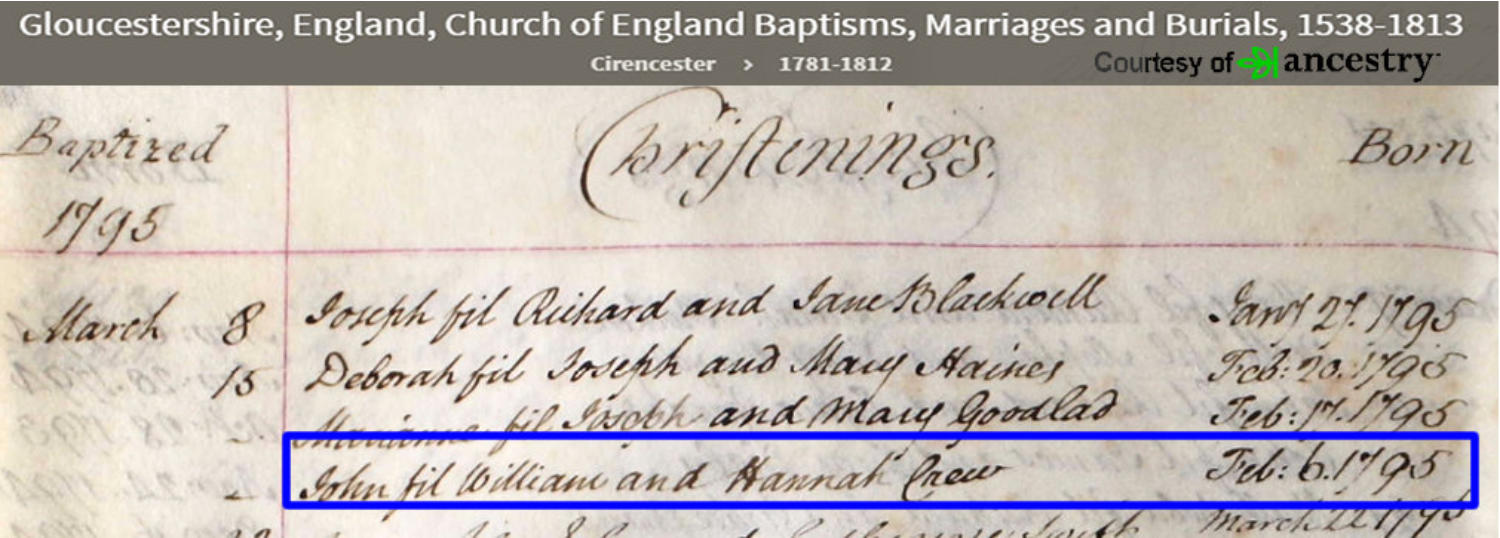 Gloucestershire, England, Church of England Baptisms, Marriages and Burials, 1538-1813
Cirencester > 1781-1812
Courtesy of ancestry
Baptized Christenings. Born
1795
March 8 Joseph fil Richard and Jane Blackwell Jany 27. 1795
15 Deborah fil Joseph and Mary Haines Feb: 20. 1795
- Marianne fil Joseph and Mary Goodlad Feb: 17. 1795
- John fil William and Hannah Crew Feb: 6. 1795
March 22 1795